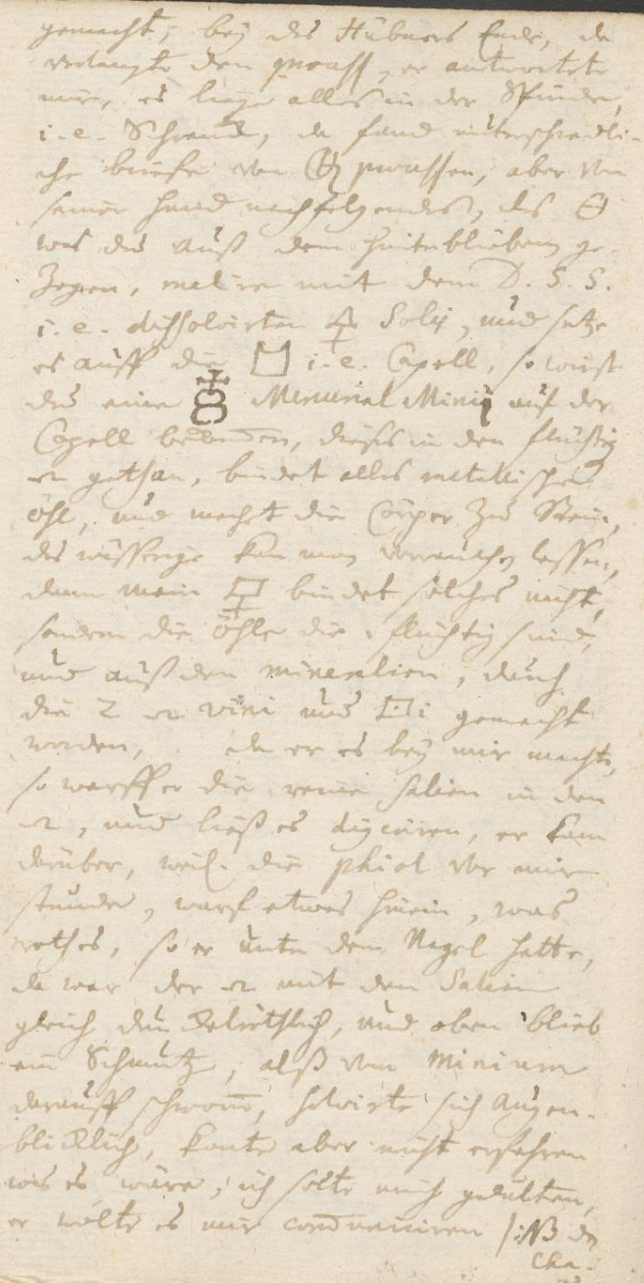 gemacht, bey des Hübners Ende, da
verlangte den process, er antwortete
mir, es liege alles in der
i. e. da fand unterschiedli-
che briefe von processen, aber von
seiner hand nachfolgendes, das 🜔
was du auß dem ge-
zogen, mit dem D. S. S.
i. e. dissolvirten 🜍 Solis, und setze
es auff die i. e. Capell, so wirst
du eine Mercurial Minii auf der
Capell dieses in den flüchtig
gethan, bindet alles metallische
öhl, und macht die Cörper zu Stein,
das wässerige kan man verrauchen lassen,
dann mein bindet solches nicht,
sondern die öhle die flüchtig sind,
und auß den mineralien, durch
die 2 vini und gemacht
worden, da er es bey mir machte,
so warff er die reine Salien in den
, und ließ es digeriren, er kam
darüber, weil die phiol vor mir
stunde, warf etwas hinein, was
rothes, so er unter dem Nagel hatte,
da war der mit den Salien
gleich dunckelröthlich, und oben blieb
ein Schmutz, alß von Minium
darauff schwom, solvirte sich augen-
blicklich, konte aber nicht erfahren
was es wäre, ich solte mich gedulten,
er wolte es mir communiciren /: NB den
Cha-